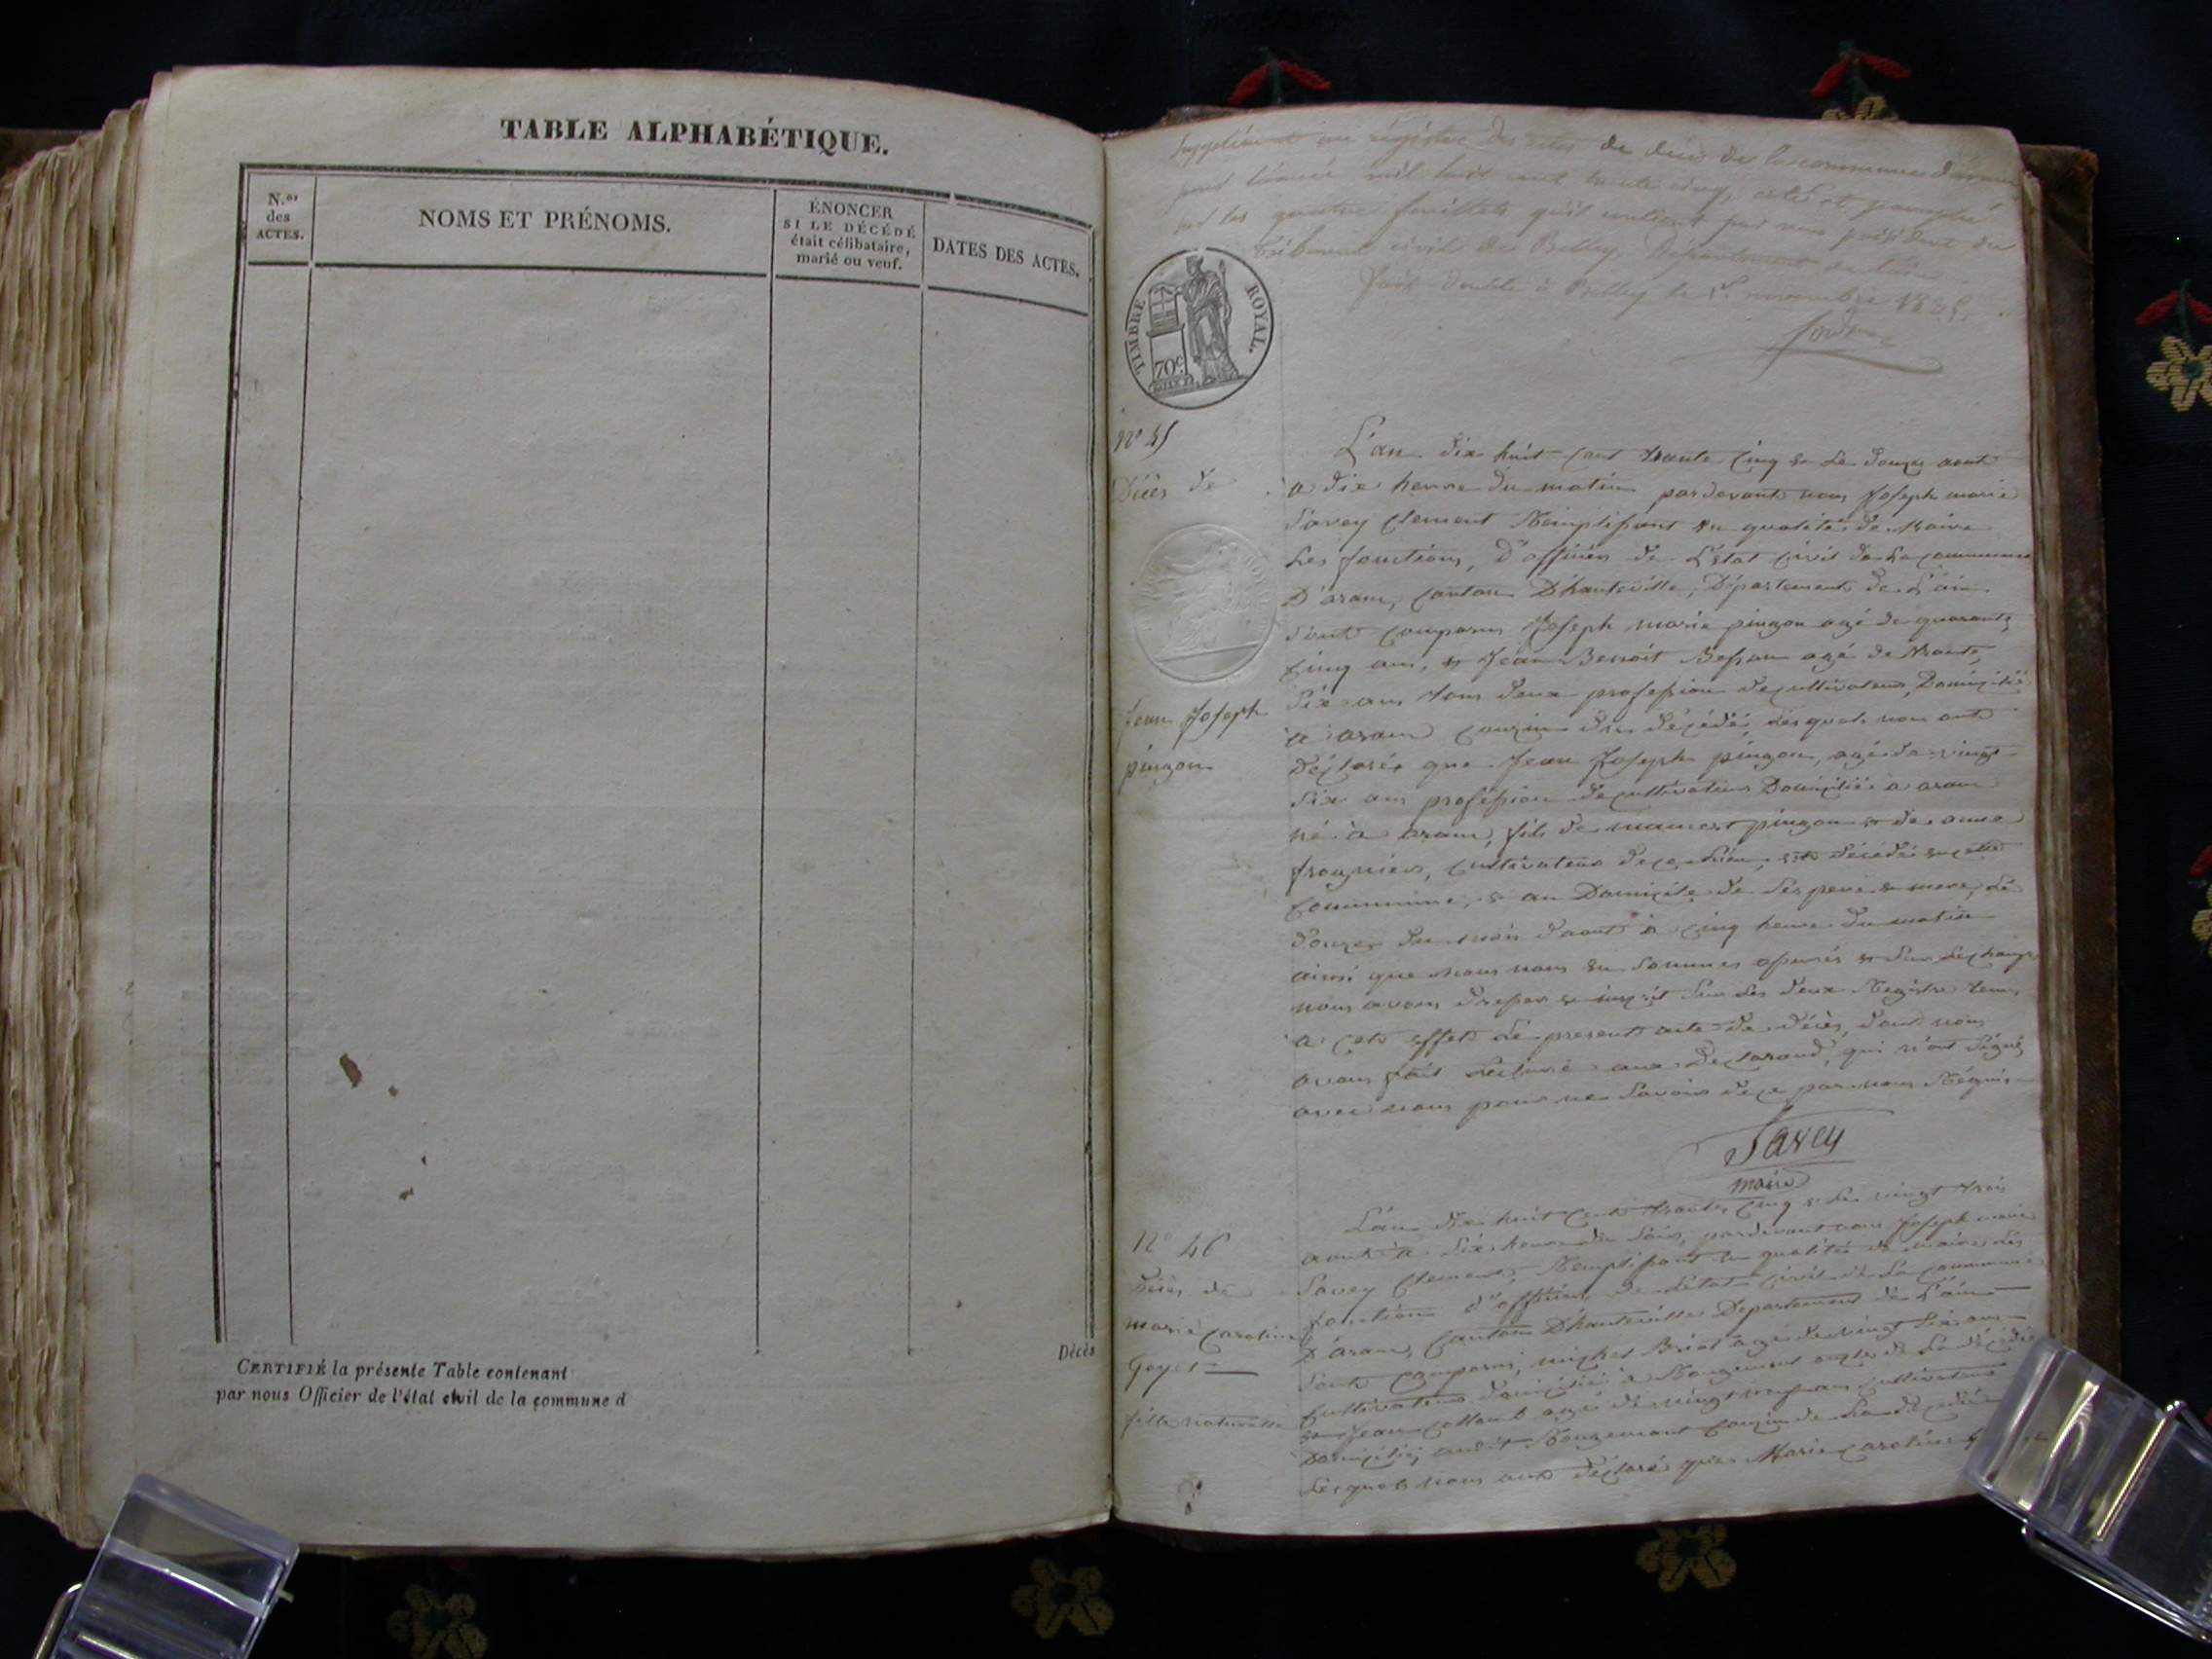 TABLE ALPHABÉTIQUE.
N.os
des
ACTES.
NOMS ET PRÉNOMS.
ÉNONCER
SI LE DÉCÉDÉ
était célibataire,
marié ou veuf.
DATES DES ACTES.
Décès
CERTIFIÉ la présente Table contenant
par nous Officier de l'état civil de la commune d
Supplément au régistre des actes de décès de la commune d'aranc
pour l'année mil huit cent trente cinq, coté et paraphé
sur les quatre feuillets qu'il contient par nous président du
tribunal civil de Belley, Département de l'ain
fait double à Belley le 1er novembre 1835.
TIMBRE ROYAL.
70c
N° 45
Décès de
Jean Joseph
pingon
L'an dix huit cent trante cinq & le douze aout
a dix heure du matin pardevant nous Joseph marie
Savey Clement Remplissant en qualité de Maire
Les fonctions, d'officier de L'état civil de la commune
D'aranc, canton D'hauteville, Département de L'ain
Sont comparus Joseph marie pingon agé de quarante
cinq ans, & Jean Benoit Besson agé de trante
Six ans tous deux profession de cultivateur, Domicilié
a aranc cousin du décédé, Lesquels nous ont
Déclaré que Jean Joseph pingon, agé de vingt
Six ans profession de cultivateur Domicilié a aranc
né a aranc, fils de mamert pingon & de anne
cultivateur de ce Lieu, est décédé en cette
Commune, & au Domicile de Ses pere & mere, Le
douze du mois d'aout a cinq heure du matin
ainsi que nous nous en Sommes assurés & Sur Le champ
nous avons dressé & inscrit Sur Les deux Registre tenu
a cet effet Le present acte de décès, dont nous
avons fait Lecture aux Declarand, qui n'ont Signé
avec nous pour ne Savoir de ce par nous Réquis
Savey
maire
N° 46
Décès de
marie caroline
Goyet
fille naturelle
L'an dix huit cent trante cinq & Le vingt trois
aout a Six heure du Soir, pardevant nous Joseph marie
Savey Clement, Remplissant en qualité de maire Les
fonction d'officier de L'état civil de La commune
D'aranc, canton D'hauteville Departement de L'ain
Sont comparu, michel Briot agé de vingt Six ans
cultivateur domicilié a Rougemont oncle de La décédée
& Jean Colland agé de vingt neuf ans cultivateur
Domicilié, audit Rougemont cousin de La décédée
Lesquels nous ont déclaré que Marie caroline